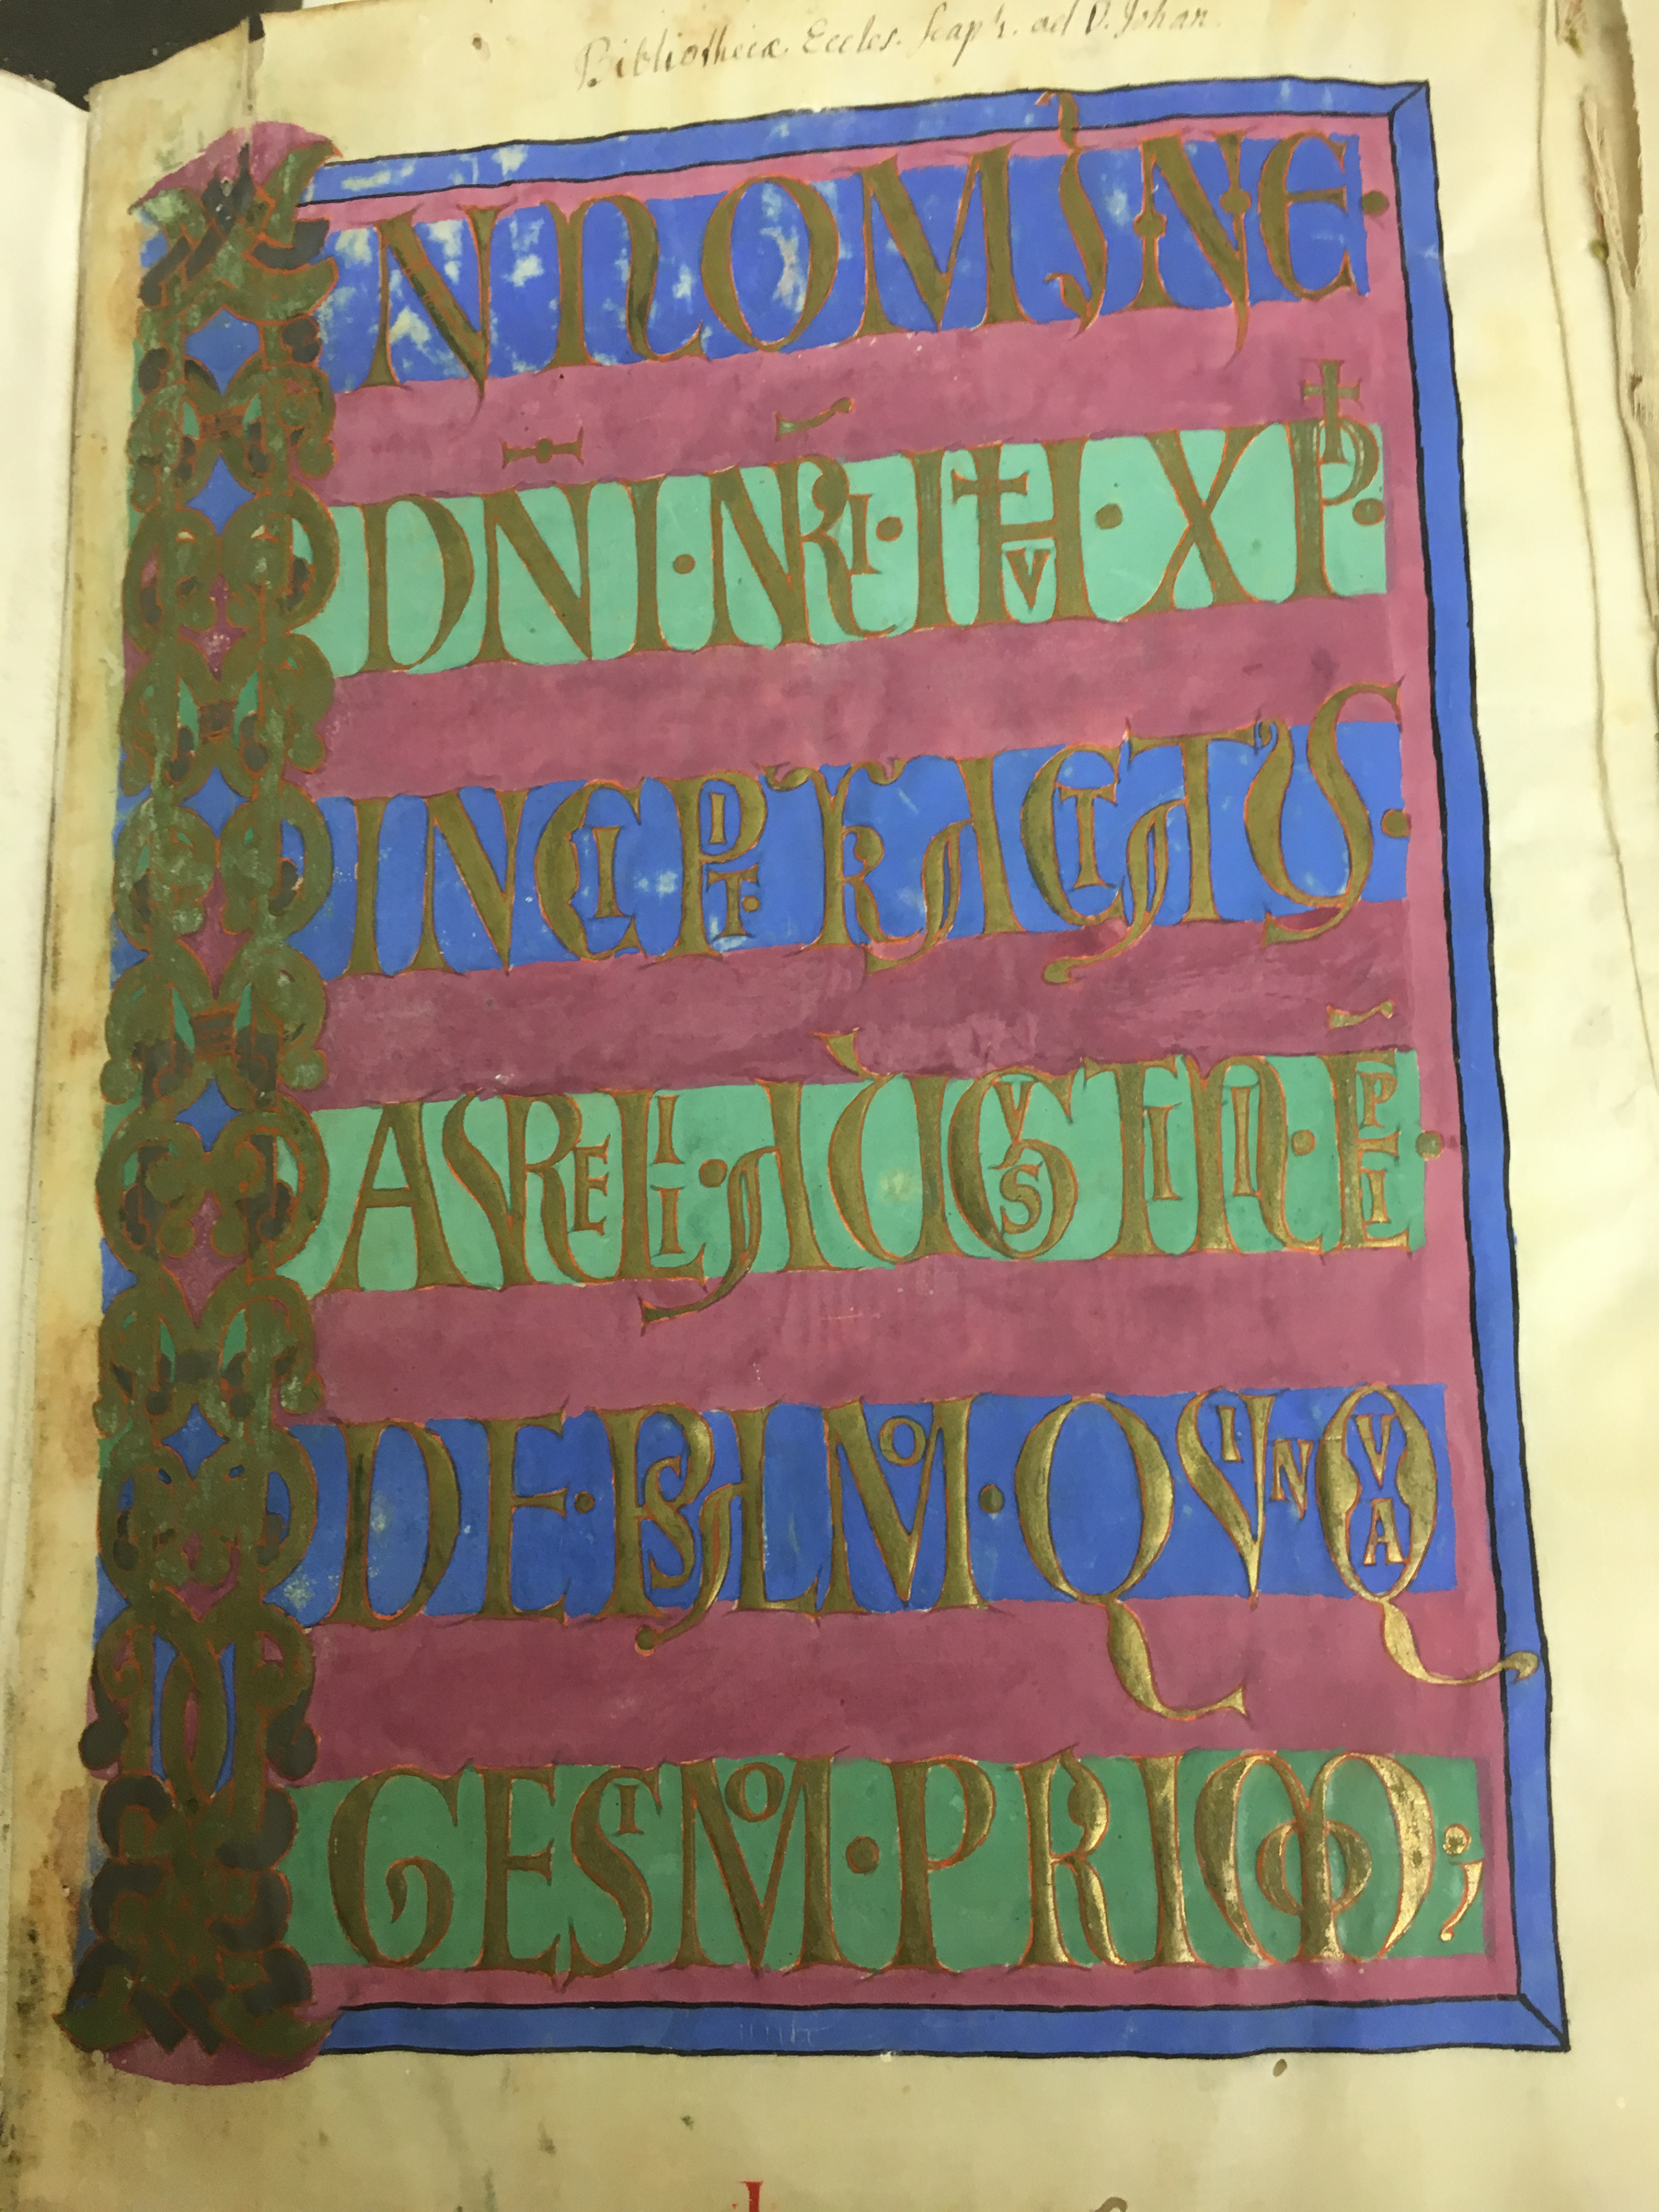 Bibliothecæ Eccles. Scaph. ad D. Johan.
IN NOMINE·
DN̄I·NR̄I·IHV·XPI·
INCIPIT·TRACTATUS·
AVRELII·AUGVSTINI·EP̄I·
DE·PSALMO·QVINQVA
GESIMO·PRIMO;